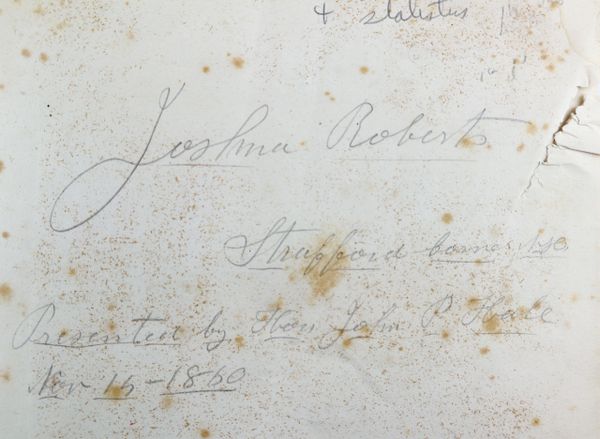 & statistics
Joshua Roberts
Strafford Corner N.H.
Presented by Hon John P Hale
Nov 15 - 1860